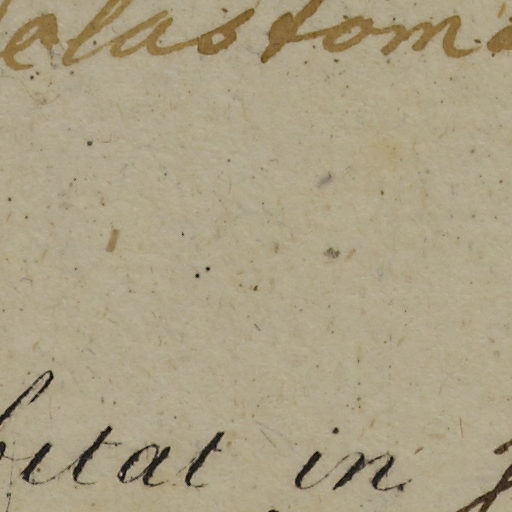 elastoma
bitat in